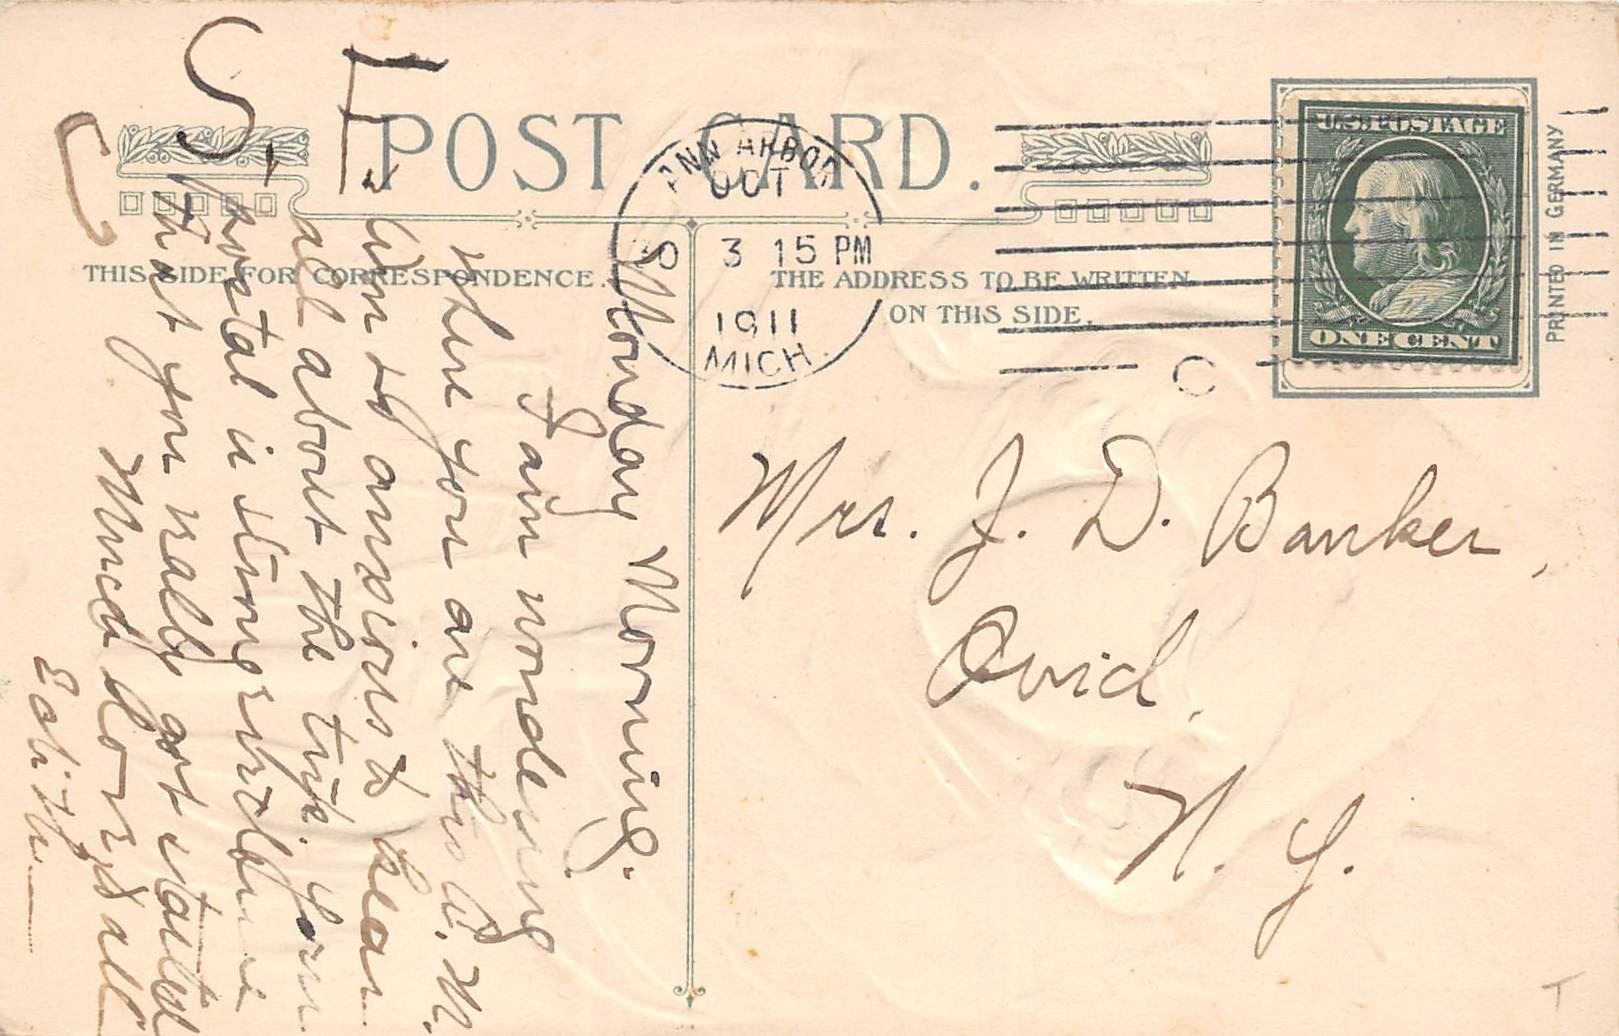 S. F.
POST CARD.
THIS SIDE FOR CORRESPONDENCE.
THE ADDRESS TO BE WRITTEN
ON THIS SIDE.
ANN ARBOR
OCT
3 15 PM
1911
MICH.
U.S. POSTAGE
ONE CENT
PRINTED IN GERMANY
Mrs. J. D. Banker,
Ovid,
N. Y.
Monday Morning.
I am wondering
where you are this A. M.
Am so anxious to hear
all about the trip. Your
postal is strong
that you really got started
Much Love to all
Edith.
T